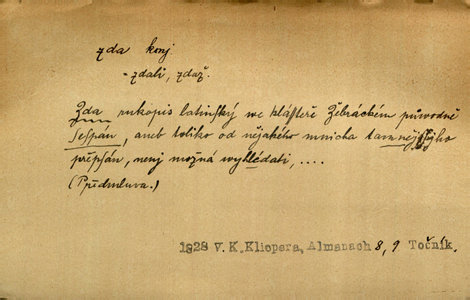 zda konj
- zdali, zdaž.
Zda rukopis latinský we klášteře Žebráckém původně
sepsán, aneb toliko od nějakého mnicha tamnějšjho
přepsán, nenj možná wyhlédati, ....
(Předmluva.)
1828 V. K. Klicpera, Almanach 8, 9 Točník.